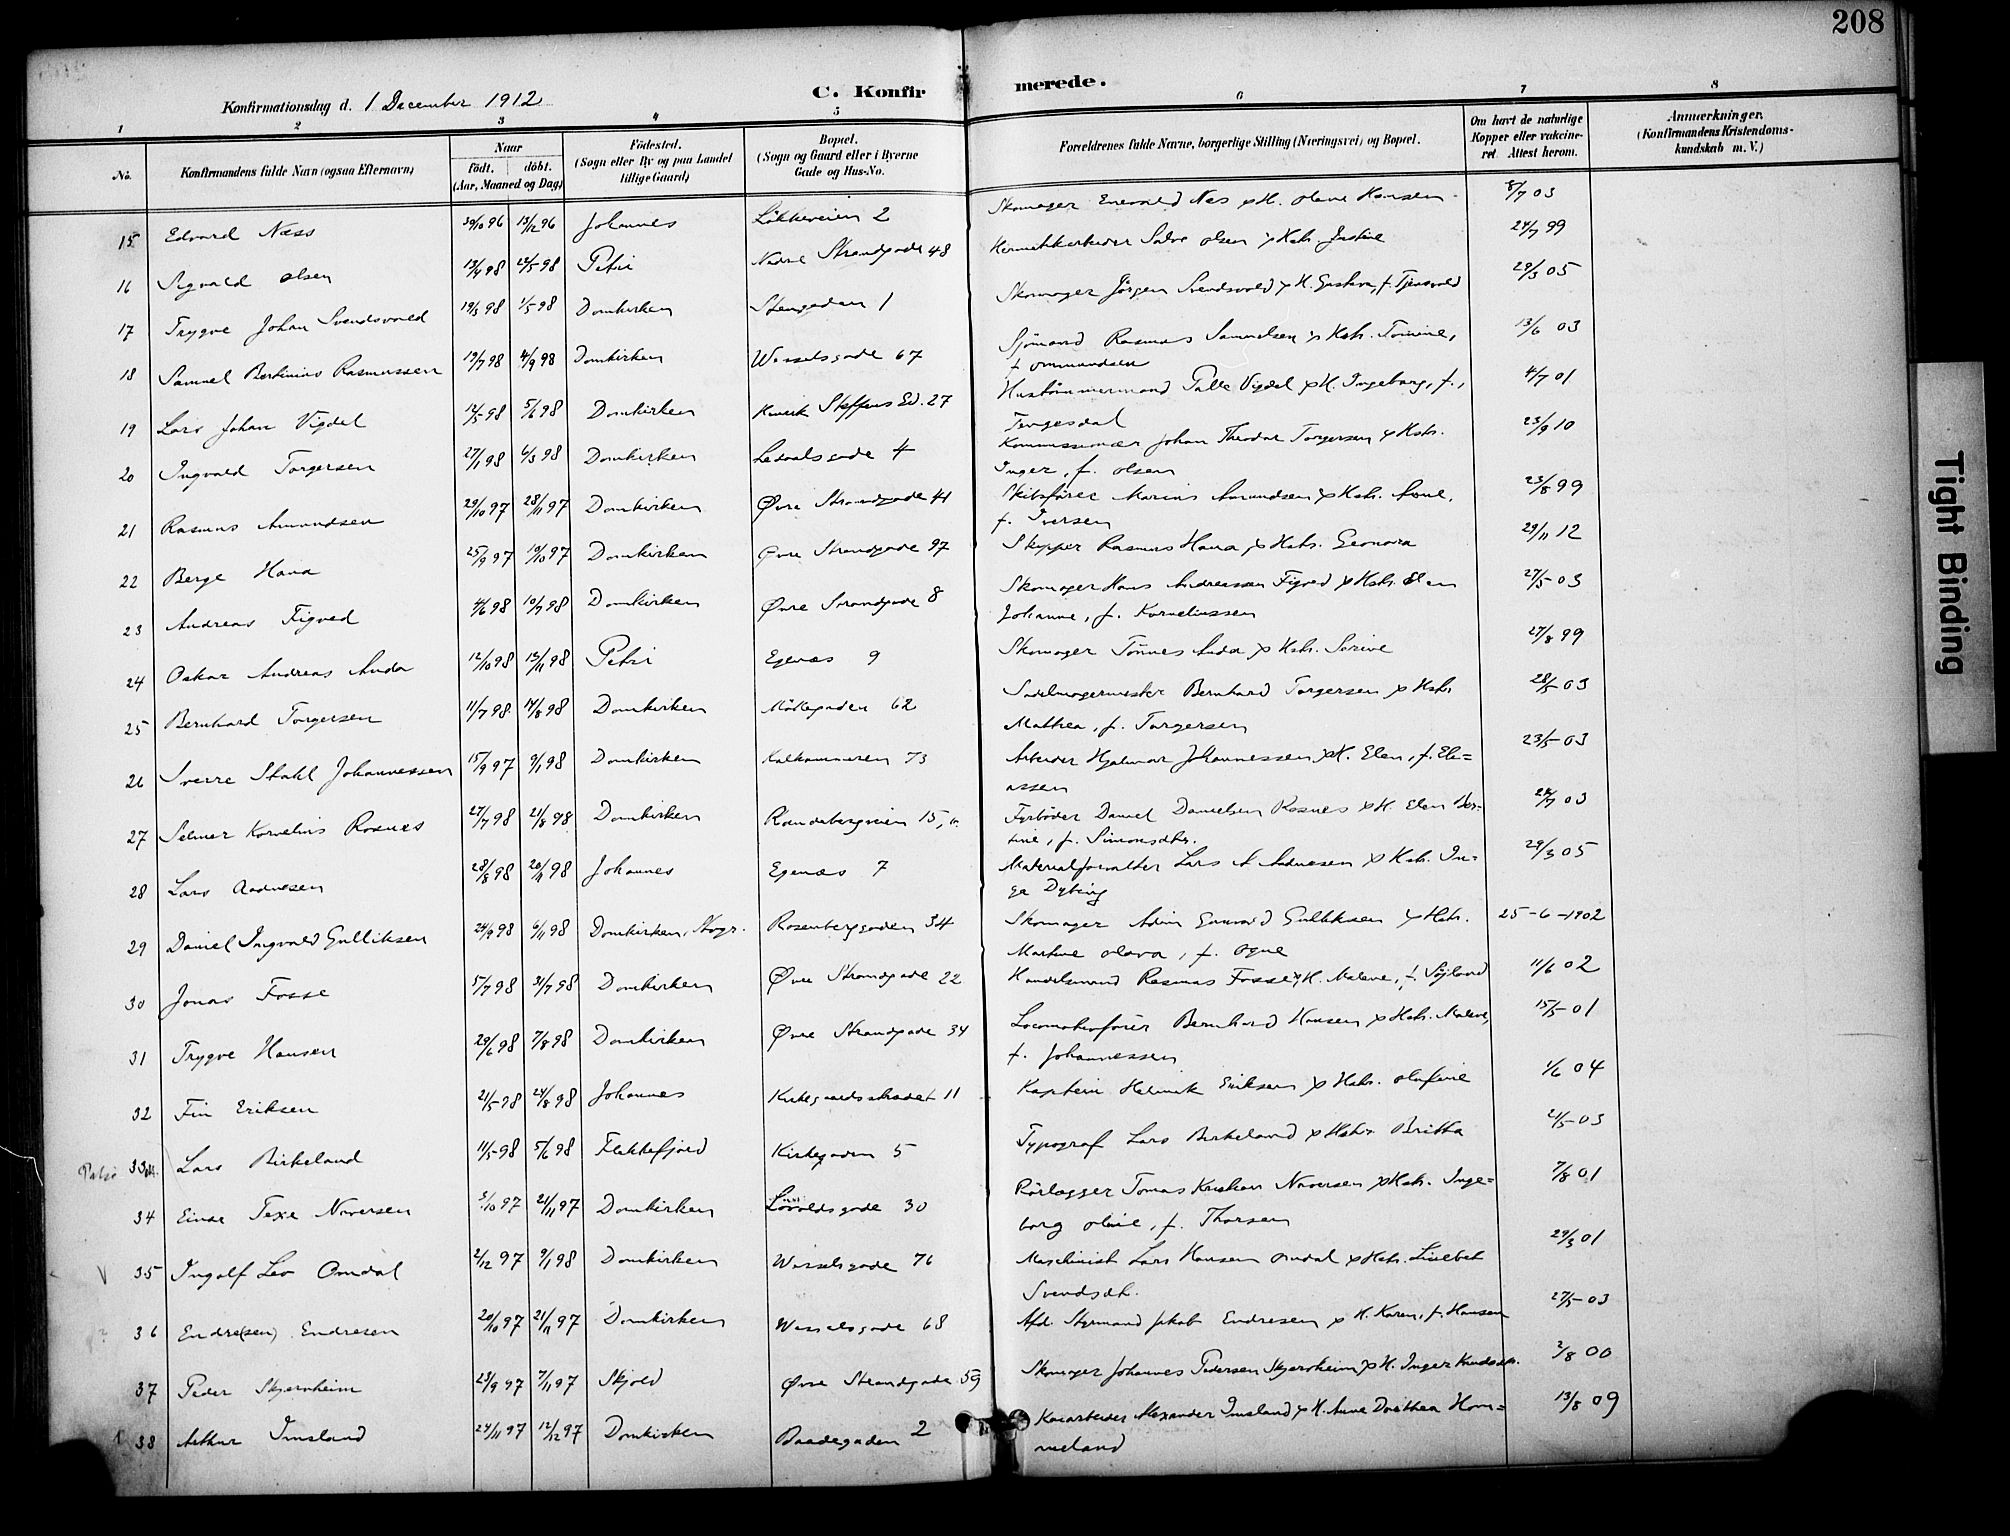 208
C. Konfir merede.
Konfirmationsdag d. 1 December 1912
1 2 3 4 5 6 7 8
No.
Konfirmandens fulde Navn (ogsaa Efternavn)
Naar
født. døbt.
(Aar, Maaned og Dag)
Fødested.
(Sogn eller By og paa Landet
tillige Gaard)
Bopæl.
(Sogn og Gaard eller i Byerne
Gade og Hus-No.
Forældrenes fulde Navne, borgerlige Stilling (Næringsvei) og Bopæl.
Om havt de naturlige
Kopper eller vakcine-
ret. Attest herom.
Anmærkninger.
(Konfirmandens Kristendoms-
kundskab m. V.)
15 Edvard Næss 30/10 96 13/12 96 Johannes Løkkeveien 2 Skomager Enevald Næs & H. Olene Hansen 8/7 03
16 Sigvald Olsen 13/4 98 22/5 98 Petri Nedre Strandgade 48 Hermetikarbeider Salve Olsen & Hstr. Justine 24/7 99
17 Trygve Johan Svendsvold 19/3 98 1/5 98 Domkirken Stengaden 1 Skomager Jörgen Svendsvold & H. Gustava, f. Tjensvold 29/3 05
18 Samuel Bertinius Rasmussen 19/7 98 4/9 98 Domkirken Wesselsgade 67 Sjömand Rasmus Samuelsen & Hstr. Tomine,
f. Ommundsen 13/6 03
19 Lars Johan Vigdel 12/5 98 5/6 98 Domkirken 27 Hustömmermand Palle Vigdel & H. Ingeborg, f.,
Tengesdal 4/7 01
20 Ingvald Torgersen 27/1 98 6/3 98 Domkirken Ledaalsgade 4 Kommissionær Johan Theodor Torgersen & Hstr.
Inger, f. Olsen 23/9 10
21 Rasmus Amundsen 29/10 97 28/11 97 Domkirken Øvre Strandgade 41 Skibsfører Marius Amundsen & Hstr. Anne,
f. Iversen 23/8 99
22 Berge Hana 25/9 97 10/10 97 Domkirken Øvre Strandgade 97 Skipper Rasmus Hana & Hstr. Leonora 29/11 12
23 Andreas Figved 4/6 98 10/7 98 Domkirken Øvre Strandgade 8 Skomager Hans Andreassen Figved & Hstr. Elen
Johanne, f. Korneliussen 27/5 03
24 Oskar Andreas Anda 12/10 98 13/11 98 Petri Egenæs 9 Skomager Tönnes Anda & Hstr. Serine 27/8 99
25 Bernhard Torgersen 11/7 98 14/8 98 Domkirken Møllegaden 62 Sadelmagermester Bernhard Torgersen & Hstr.
Mathea, f. Torgersen 28/5 03
26 Sverre Stahl Johannessen 15/9 97 9/1 98 Domkirken Kalhammeren 73 Arbeider Hjalmar Johannessen & H. Elen, f. Eli=
assen 23/5 03
27 Selmer Kornelius Rosnes 27/7 98 21/8 98 Domkirken Ramdebergveien 15, Fyrböder Daniel Danielsen Rosnes & H. Elen Ber-
tine, f. Simonsdtr. 24/7 03
28 Lars Aadnesen 28/8 98 20/11 98 Johannes Egenæs 7 Materialforvalter Lars A Aadnesen & Hstr. In-
ga Dybing 29/3 05
29 Daniel Ingvald Gulliksen 24/9 98 6/11 98 Domkirken, Stvgr. Rosenberggaden 34 Skomager Gulliksen & Hstr.
Martine Olava, f. Ogne 25-6-1902
30 Jonas Fosse 5/7 98 31/7 98 Domkirken Øvre Strandgade 22 Handelsmand Rasmus Fosse & H. Malene, f. Söyland 11/6 02
31 Trygve Hansen 29/6 98 7/8 98 Domkirken Øvre Strandgade 34 Locomotivförer Bernhard Hansen & Hstr. Malene,
f. Johannessen 15/5 01
32 Fin Eriksen 21/5 98 24/8 98 Johannes Kirkegaardsstrædet 11 Kaptein Helmik Eriksen & Hstr. Olufine 1/6 04
33 Lars Birkeland 11/5 98 5/6 98 Flekkefjord Kirkegaden 5 Typograf Lars Birkeland & Hstr. Britha 21/5 03
34 Einar Texe Naversen 3/10 97 21/11 97 Domkirken Løvoldsgade 30 Rörlægger Tomas Kristian Naversen & Hstr. Inge=
borg Oline, f. Thorsen 7/8 01
35 Ingolf Leo Omdal 2/12 97 9/1 98 Domkirken Wesselsgade 76 Maschinist Lars Hansen Omdal & Hstr. Lisebet
Svendsdtr. 29/3 01
36 Endre(sen) Endresen 20/10 97 21/11 97 Domkirken Wesselsgade 68 Afd. Styrmand Jakob Endresen & H. Karen, f. Hansen 27/5 03
37 Peder Skjernheim 23/9 97 7/11 97 Skjold Øvre Strandgade 59 Skomager Johannes Pedersen Skjernheim & H. Inger Knudsdtr. 2/8 00
38 Arthur Imsland 24/11 97 12/12 97 Domkirken Baadegaden 2 Kaiarbeider Alexander Imsland & H. Anne Dorthea Hom=
meland 13/8 09
Tight Binding